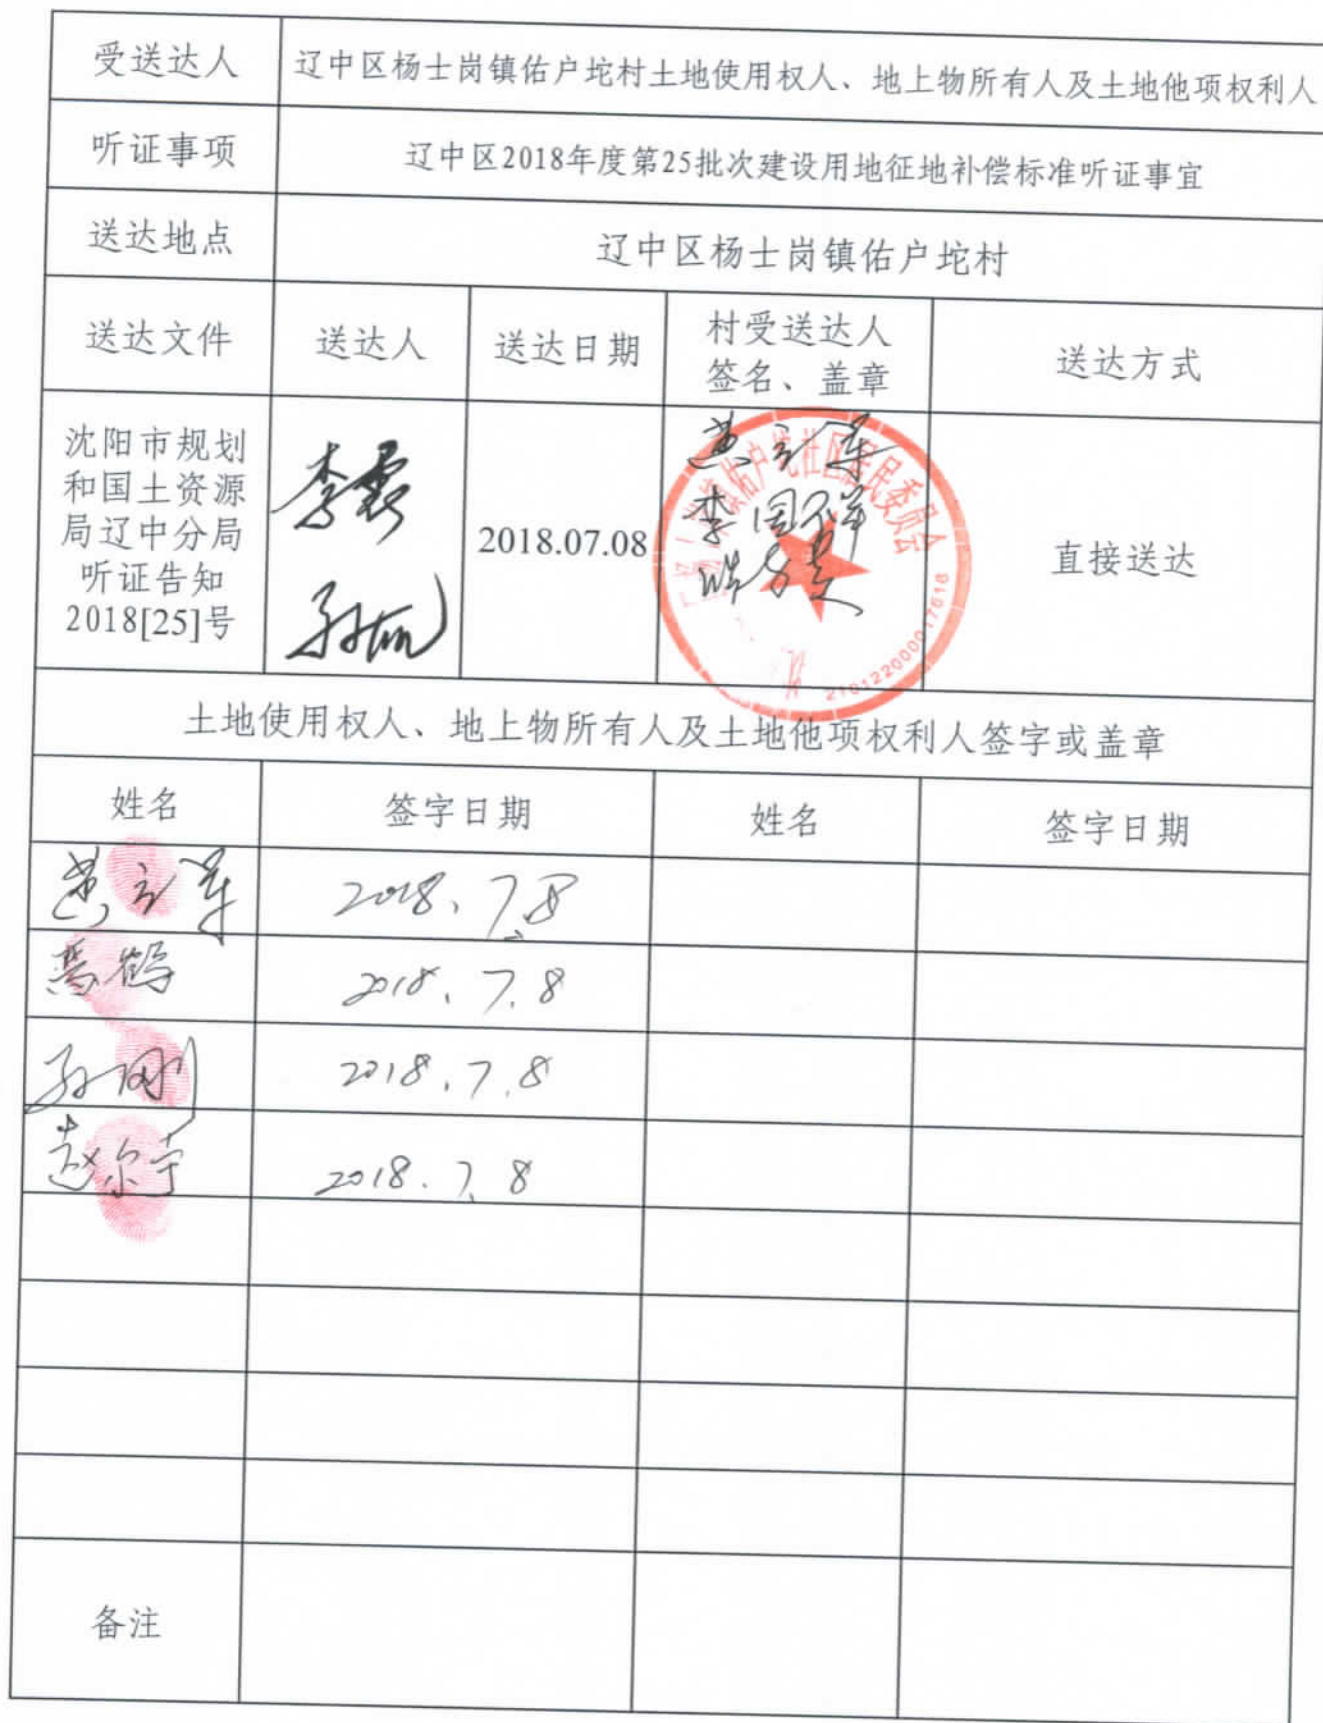 受送达人
辽中区杨士岗镇佑户坨村土地使用权人、地上物所有人及土地他项权利人
听证事项
辽中区2018年度第25批次建设用地征地补偿标准听证事宜
送达地点
辽中区杨士岗镇佑户坨村
送达文件
送达人
送达日期
村受送达人
签名、盖章
送达方式
沈阳市规划
和国土资源
局辽中分局
听证告知
2018[25]号
2018.07.08
李国祥
直接送达
土地使用权人、地上物所有人及土地他项权利人签字或盖章
姓名
签字日期
姓名
签字日期
2018.7.8
2018.7.8
孙刚
2018.7.8
赵尔宁
2018.7.8
备注